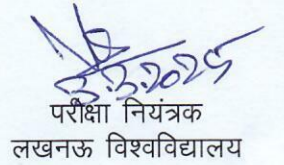 3.3.2025
परीक्षा नियंत्रक
लखनऊ विश्वविद्यालय